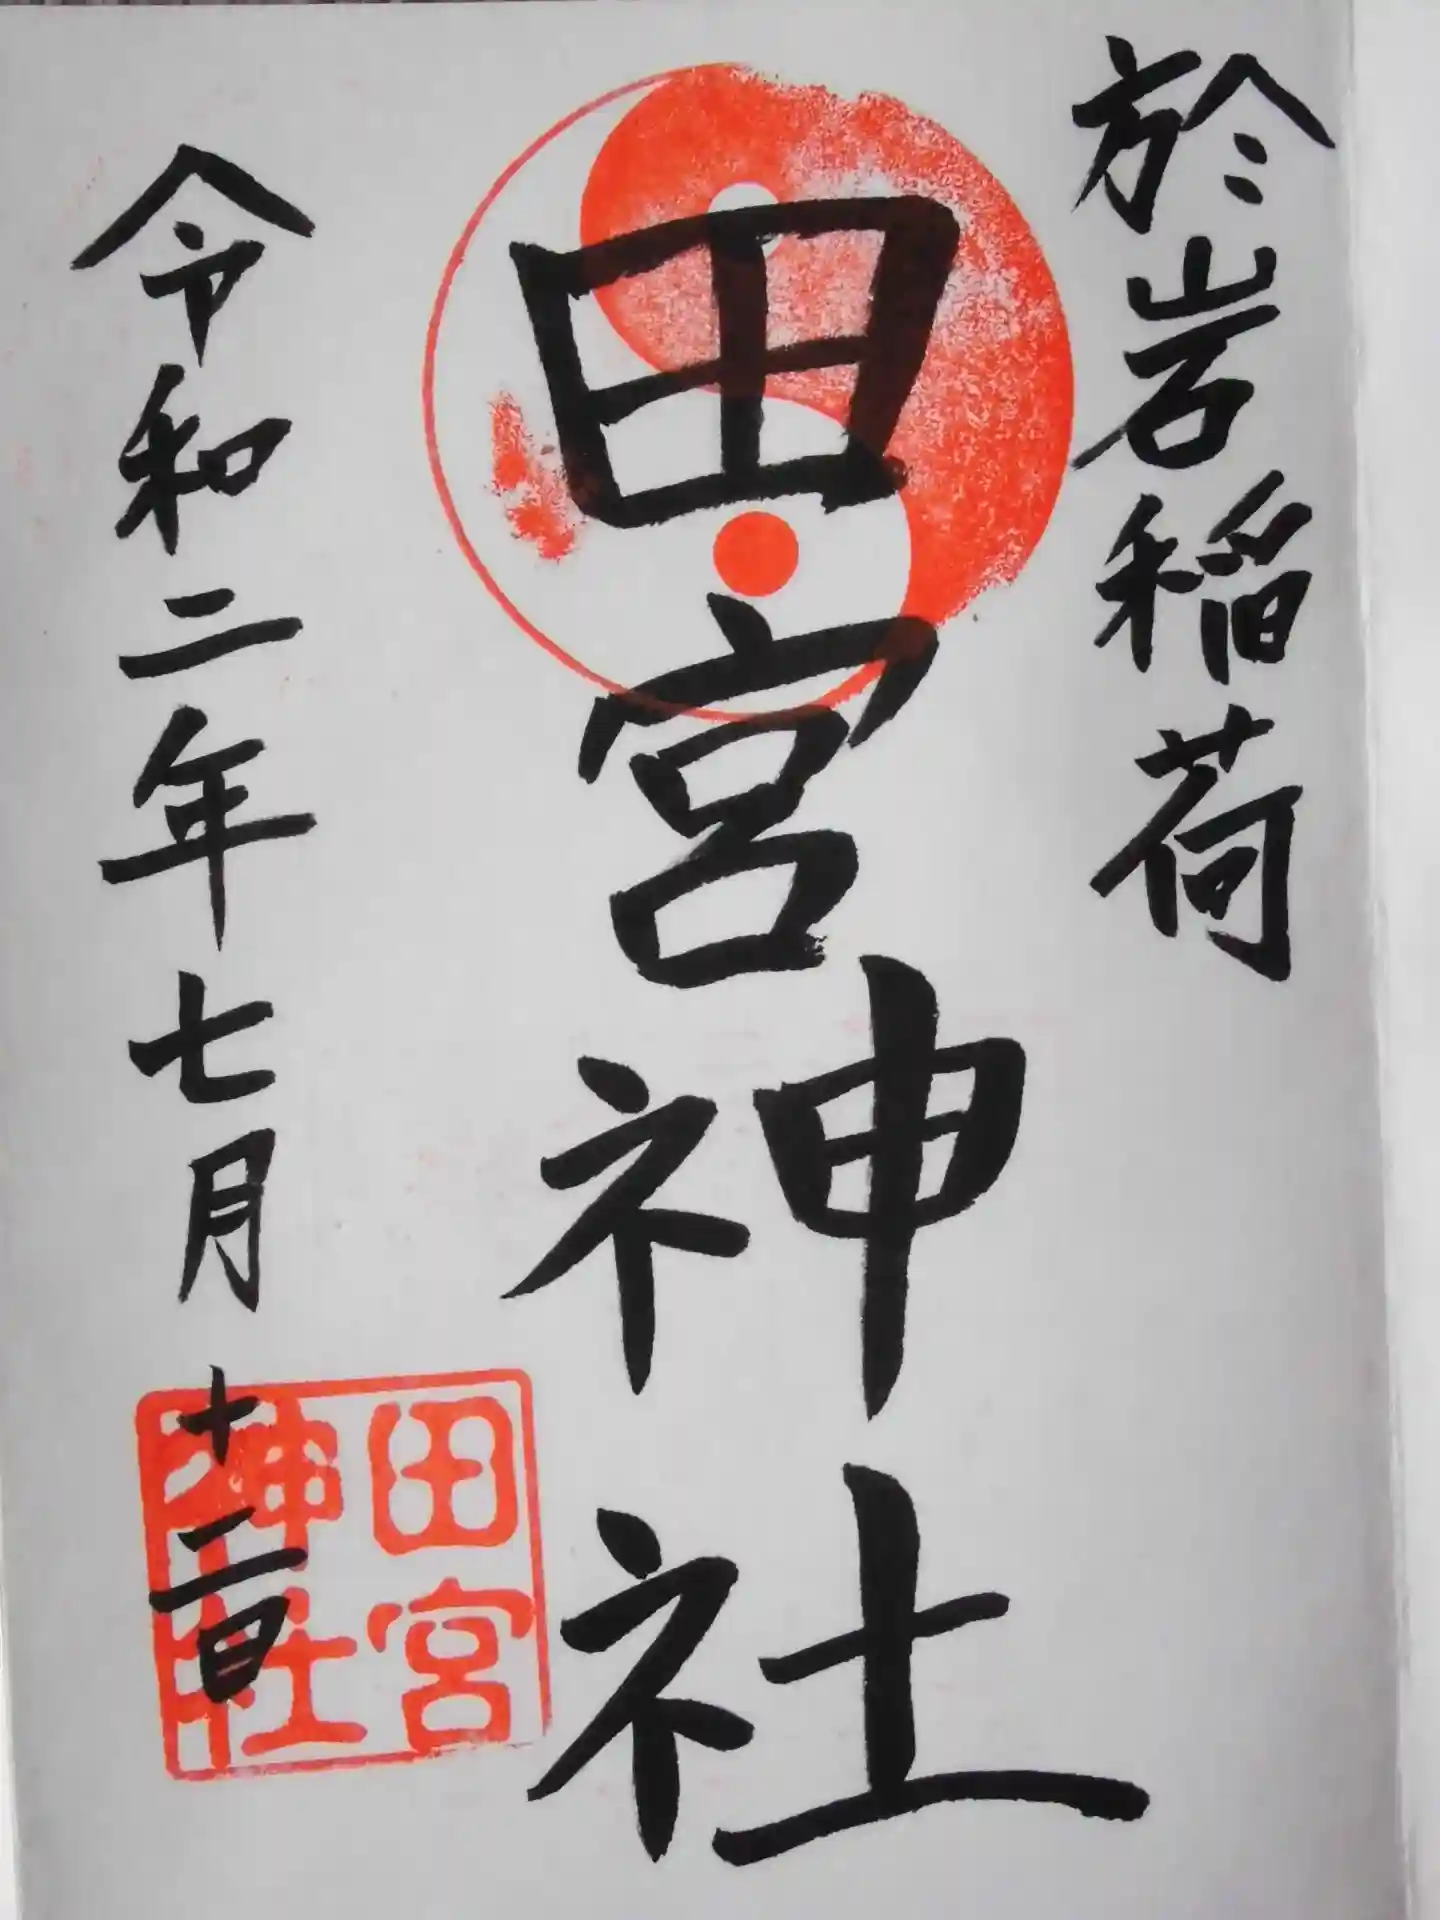 於岩稲荷
田宮神社
令和二年七月十二日
田宮
神社